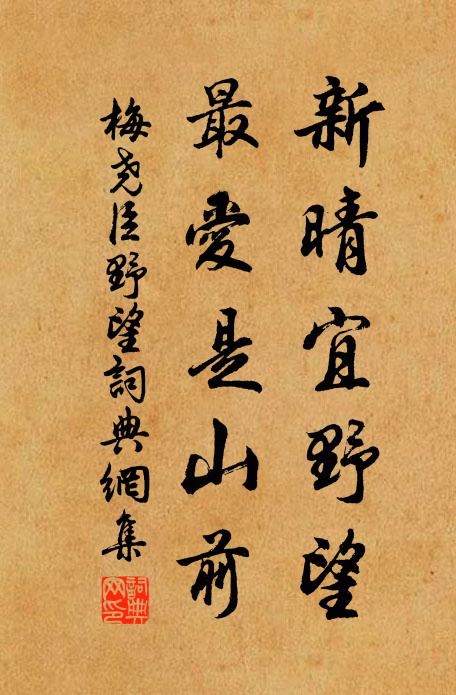 新晴宜野望
最愛是山前
梅堯臣野望詞典網集
詞典
网印